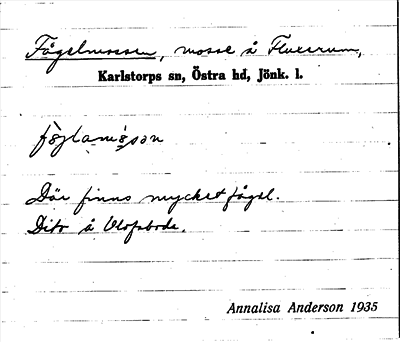 Fågelmossen, mosse å Fluerrum,
Karlstorps sn, Östra hd, Jönk. l.
Där finns mycket fågel.
Dito å Olofsbode.
Annalisa Anderson 1935